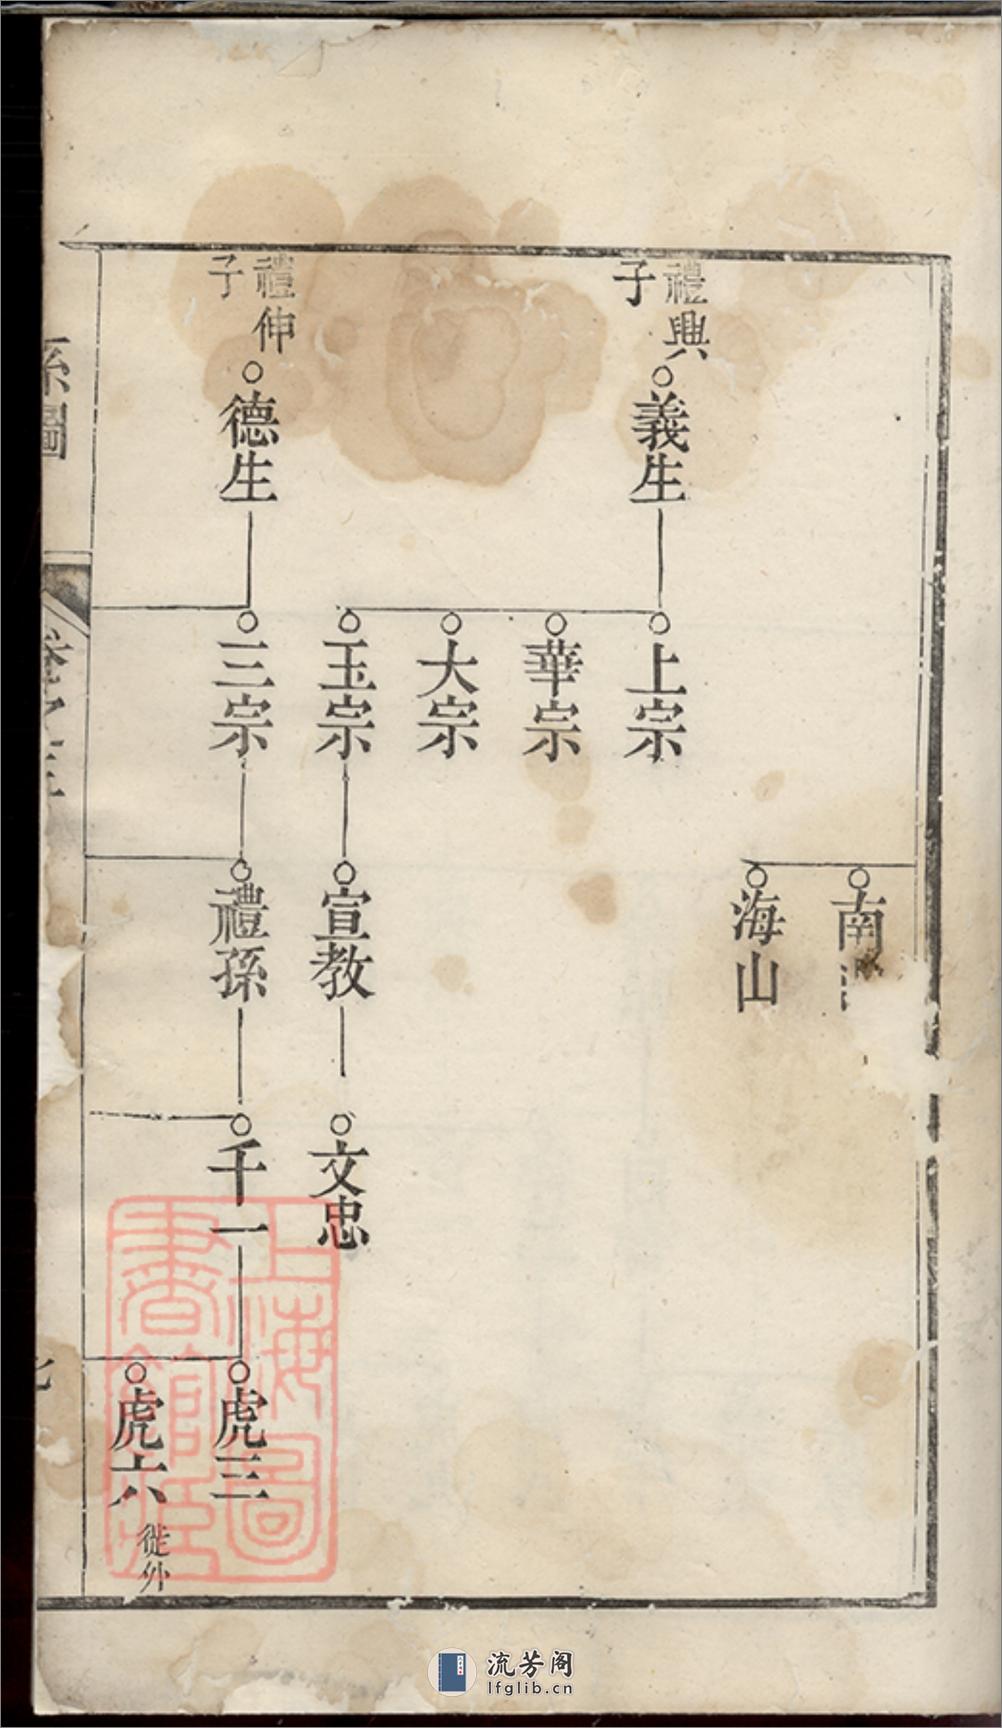 南
海山
禮興
子
義生
上宗
華宗
大宗
玉宗
宣教
文忠
禮伸
子
德生
三宗
禮孫
千一
虎三
虎六
徙外
系圖
上海圖
書館藏
流芳阁
lfglib.cn